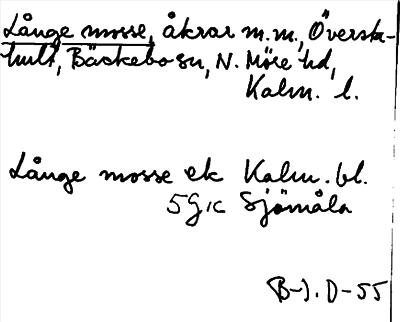 Långe mosse, åkrar m.m., Översta-
hult, Bäckebo sn, N. Möre hd,
Kalm. l.
Långe mosse ek Kalm. bl.
5G, c Sjömåla
B-J. D-55